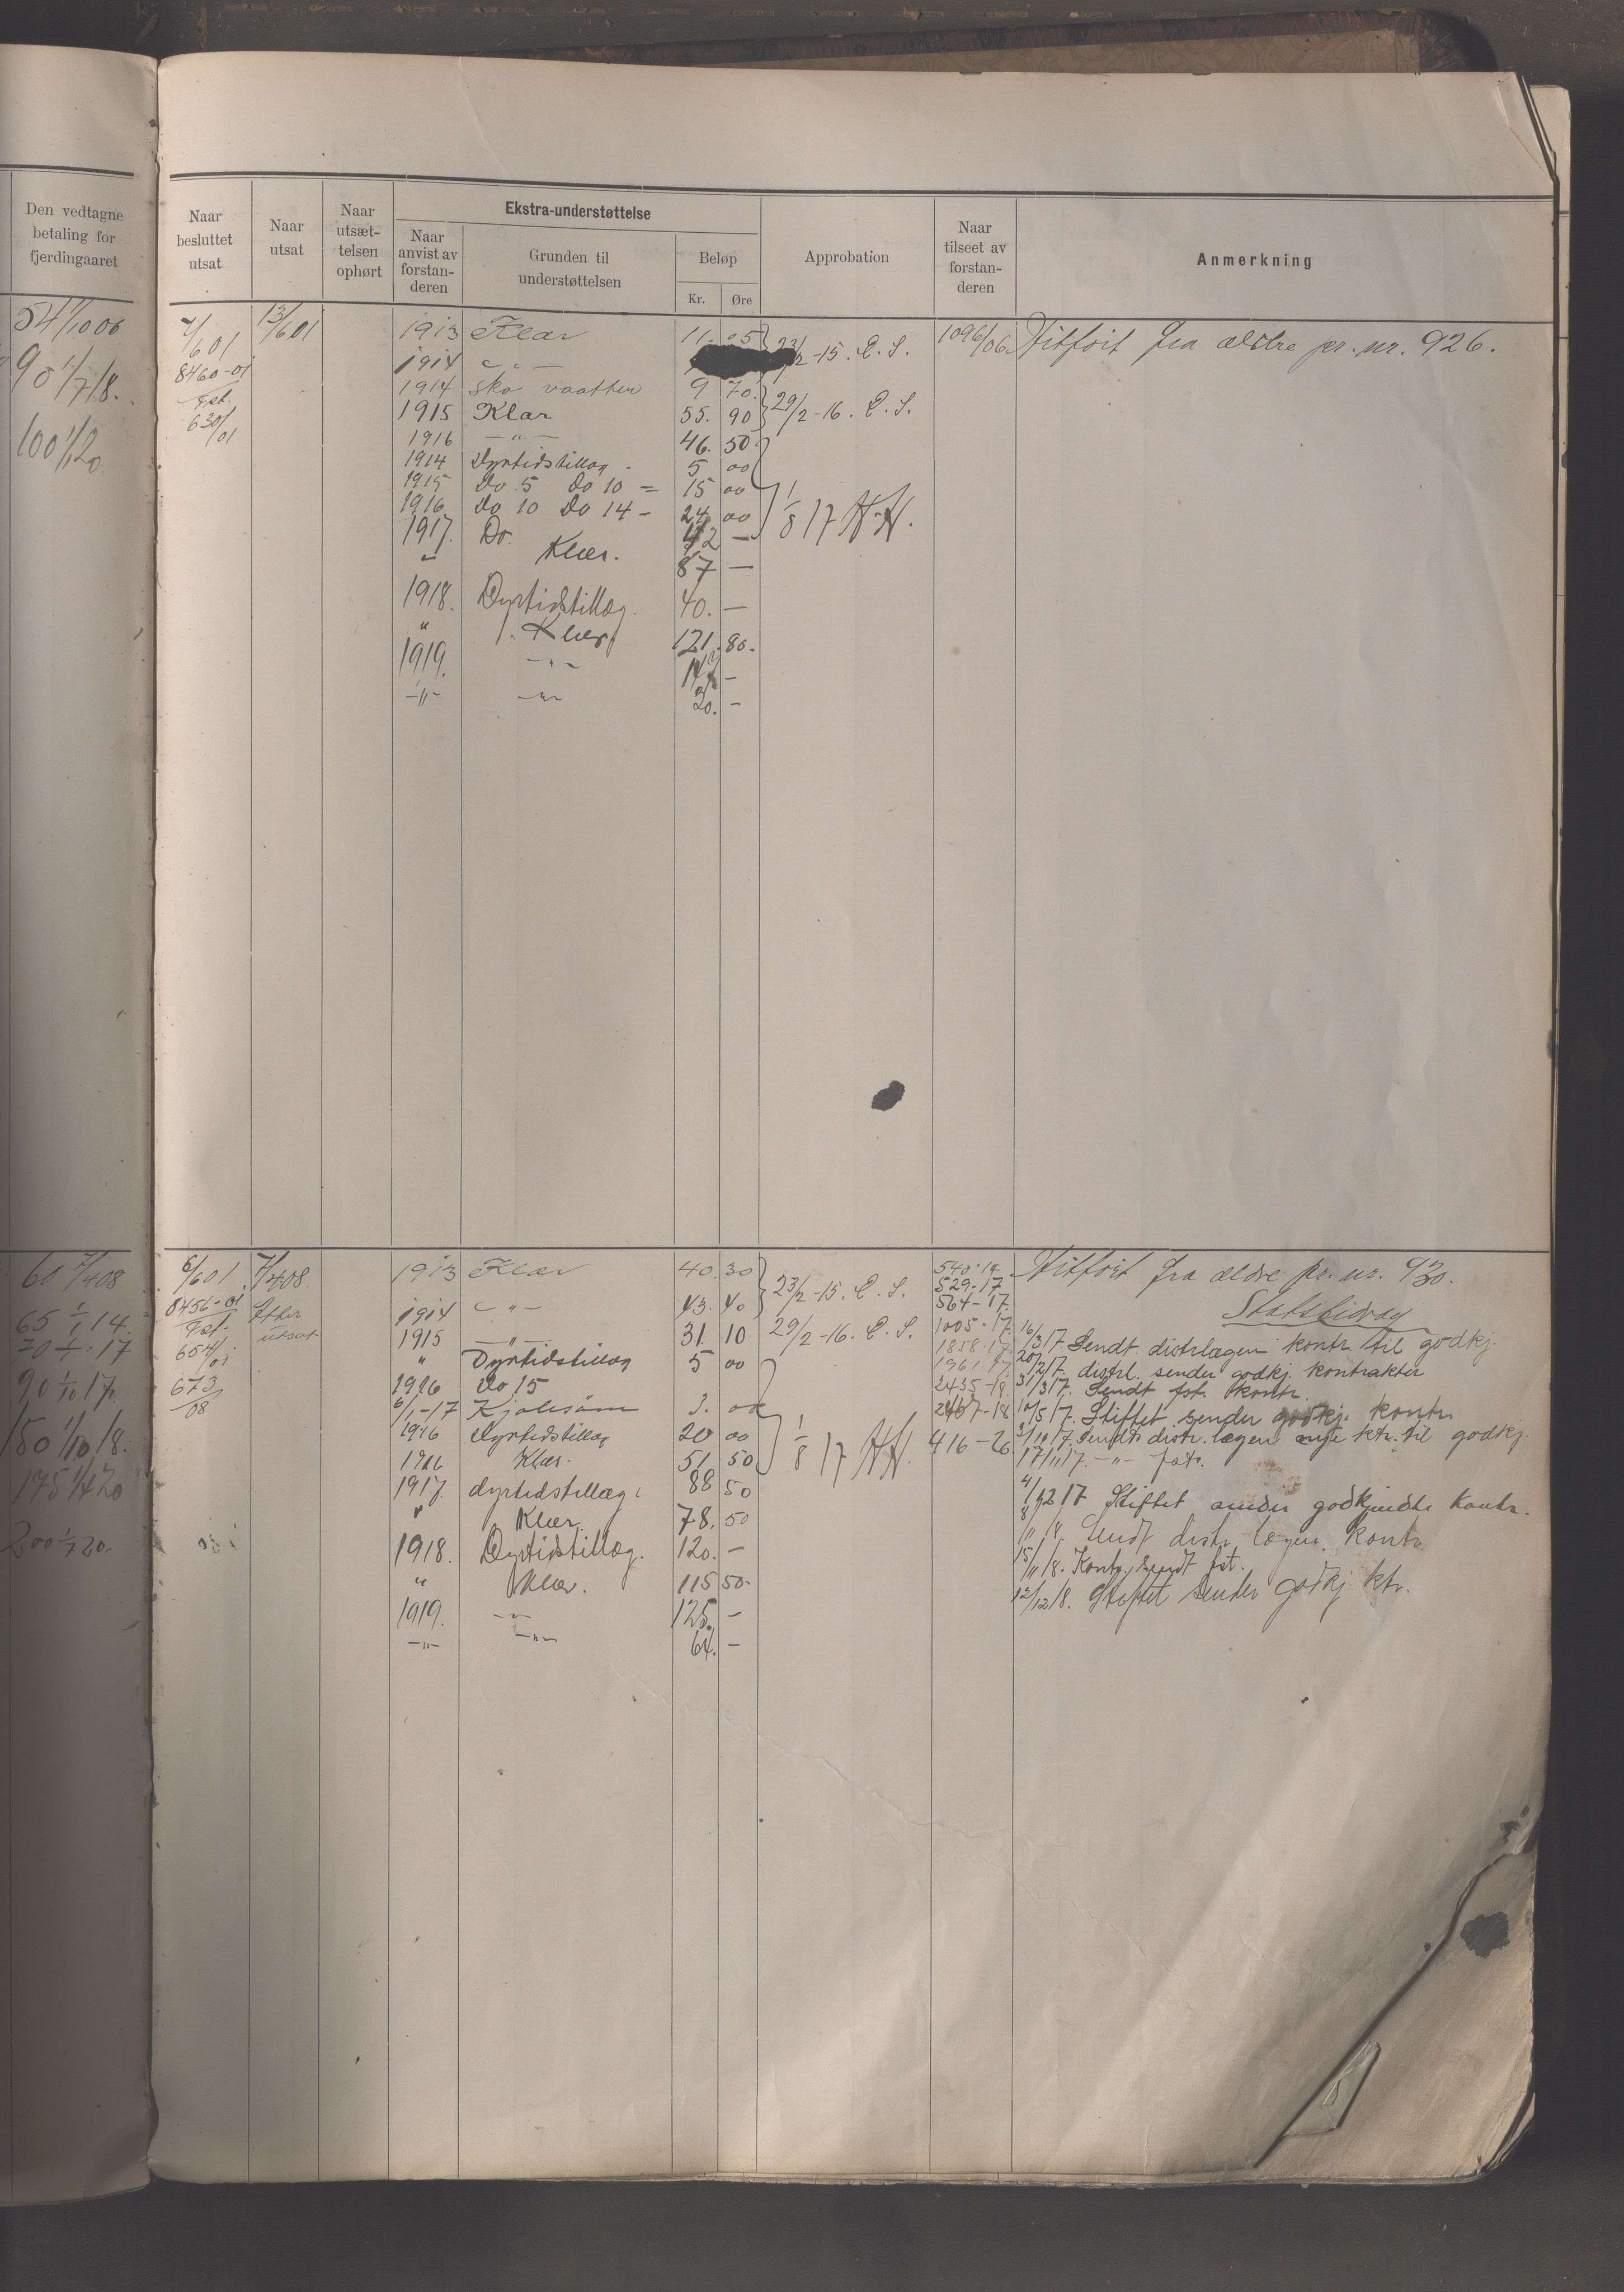 Den vedtagne
betaling for
fjerdingaaret
Naar
besluttet
utsat
Naar
utsat
Naar
utsæt-
telsen
ophørt
Ekstra-understøttelse
Naar
anvist av
forstan-
deren
Grunden til
understøttelsen
Beløp
Kr.
Øre
Approbation
Naar
tilseet av
forstan-
deren
Anmerkning
54 1/10 06
90 1/7 18.
100 1/1 20
7/6 01
8460-01
Fst.
630/01
13/6 01
1913 Klær 11. 05
1914 - " -
23/2-15. E. S.
1096/06
Hitført fra ældre pr. nr. 926.
1914 Sko vaatter 9 70.
1915 Klær 55. 90
29/2-16. E. S.
1916 - " - 46. 50
1914 Dyrtidstillæg 5 00
1915 Do 5 Do 10 = 15 00
1916 Do 10 Do 14 - 24 00
1/8 17 HH.
1917. Do. 42 -
" Klær. 87 -
1918. Dyrtidstillæg. 40. -
" Klær 121. 80.
1919. - " - -
- " - - " - 20. -
60 7/4 08
65 1/1 14.
70 1/1 17
90 1/10 17.
150 1/10 18.
175 1/4 20
200 1/7 20.
6/6 01
8456-01
Fst.
654/01
673/08
7/4 08.
Efter
utsat
1913 Klær 40. 30
1914 - " - 43. 40
23/2-15. E. S.
1915 - " - 31. 10
29/2-16. E. S.
" Dyrtidstillæg 5 00
1916 Do 15
6/1-17 Kjolesøm 3. 00
1916 Dyrtidstillæg 20 00
1916 Klær. 51 50
1/8 17 HH.
1917. dyrtidstillæg 88 50
" Klær 78. 50
1918. Dyrtidstillæg. 120. -
" Klær. 115 50.
1919. - " - 125. -
- " - - " - 64. -
540-17
529-17
564-17.
1005-17.
1858-17.
1961-17
2435-18
2467-18
416-26
Hitført fra ældre pr. nr. 930.
Statsbidrag
16/3 17 Sendt distrlægen kontr til godkj.
20/2 17. distrl. sender godkj. kontrakter
31/3 17. Sendt fst. kontr.
10/5 17. Stiftet sender godkj. kontr
3/11 17. Sendt distr. lægen nye ktr. til godkj.
17/11 17. - " - fst.
4/12 17 Stiftet sender godkjendte kontr.
8/11 18. Sendt distr lægen kontr.
15/11 18. Kontr. sendt fst.
12/12 18. Stiftet sender godkj. ktr.